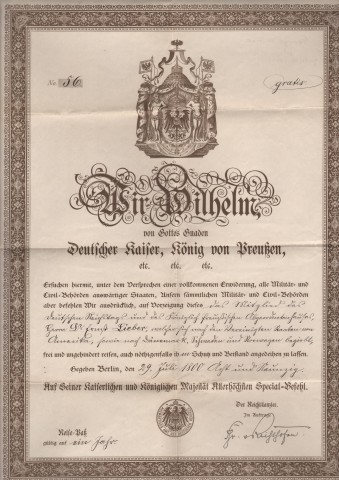 No. 56. gratis
Wir Wilhelm,
von Gottes Gnaden
Deutscher Kaiser, König von Preußen,
etc. etc. etc.
Ersuchen hiermit, unter dem Versprechen einer vollkommenen Erwiderung, alle Militär- und
Civil-Behörden auswärtiger Staaten, Unsern sämmtlichen Militär- und Civil-Behörden
aber befehlen Wir ausdrücklich, auf Vorzeigung dieses, das Mitglied des
Deutschen Reichstags und des Königlich Preußischen Abgeordnetenhauses,
Herrn Dr Ernst Lieber, welcher sich nach den Vereinigten Staaten von
Amerika, sowie nach Dänemark, Schweden und Norwegen begiebt,
frei und ungehindert reisen, auch nöthigenfalls ihm Schutz und Beistand angedeihen zu lassen.
Gegeben Berlin, den 29. Juli 1800 Acht und Neunzig.
Auf Seiner Kaiserlichen und Königlichen Majestät Allerhöchsten Special-Befehl.
Der Reichskanzler.
Im Auftrage
Reise-Paß
gültig auf ein Jahr.
Fhr. v. Richthofen